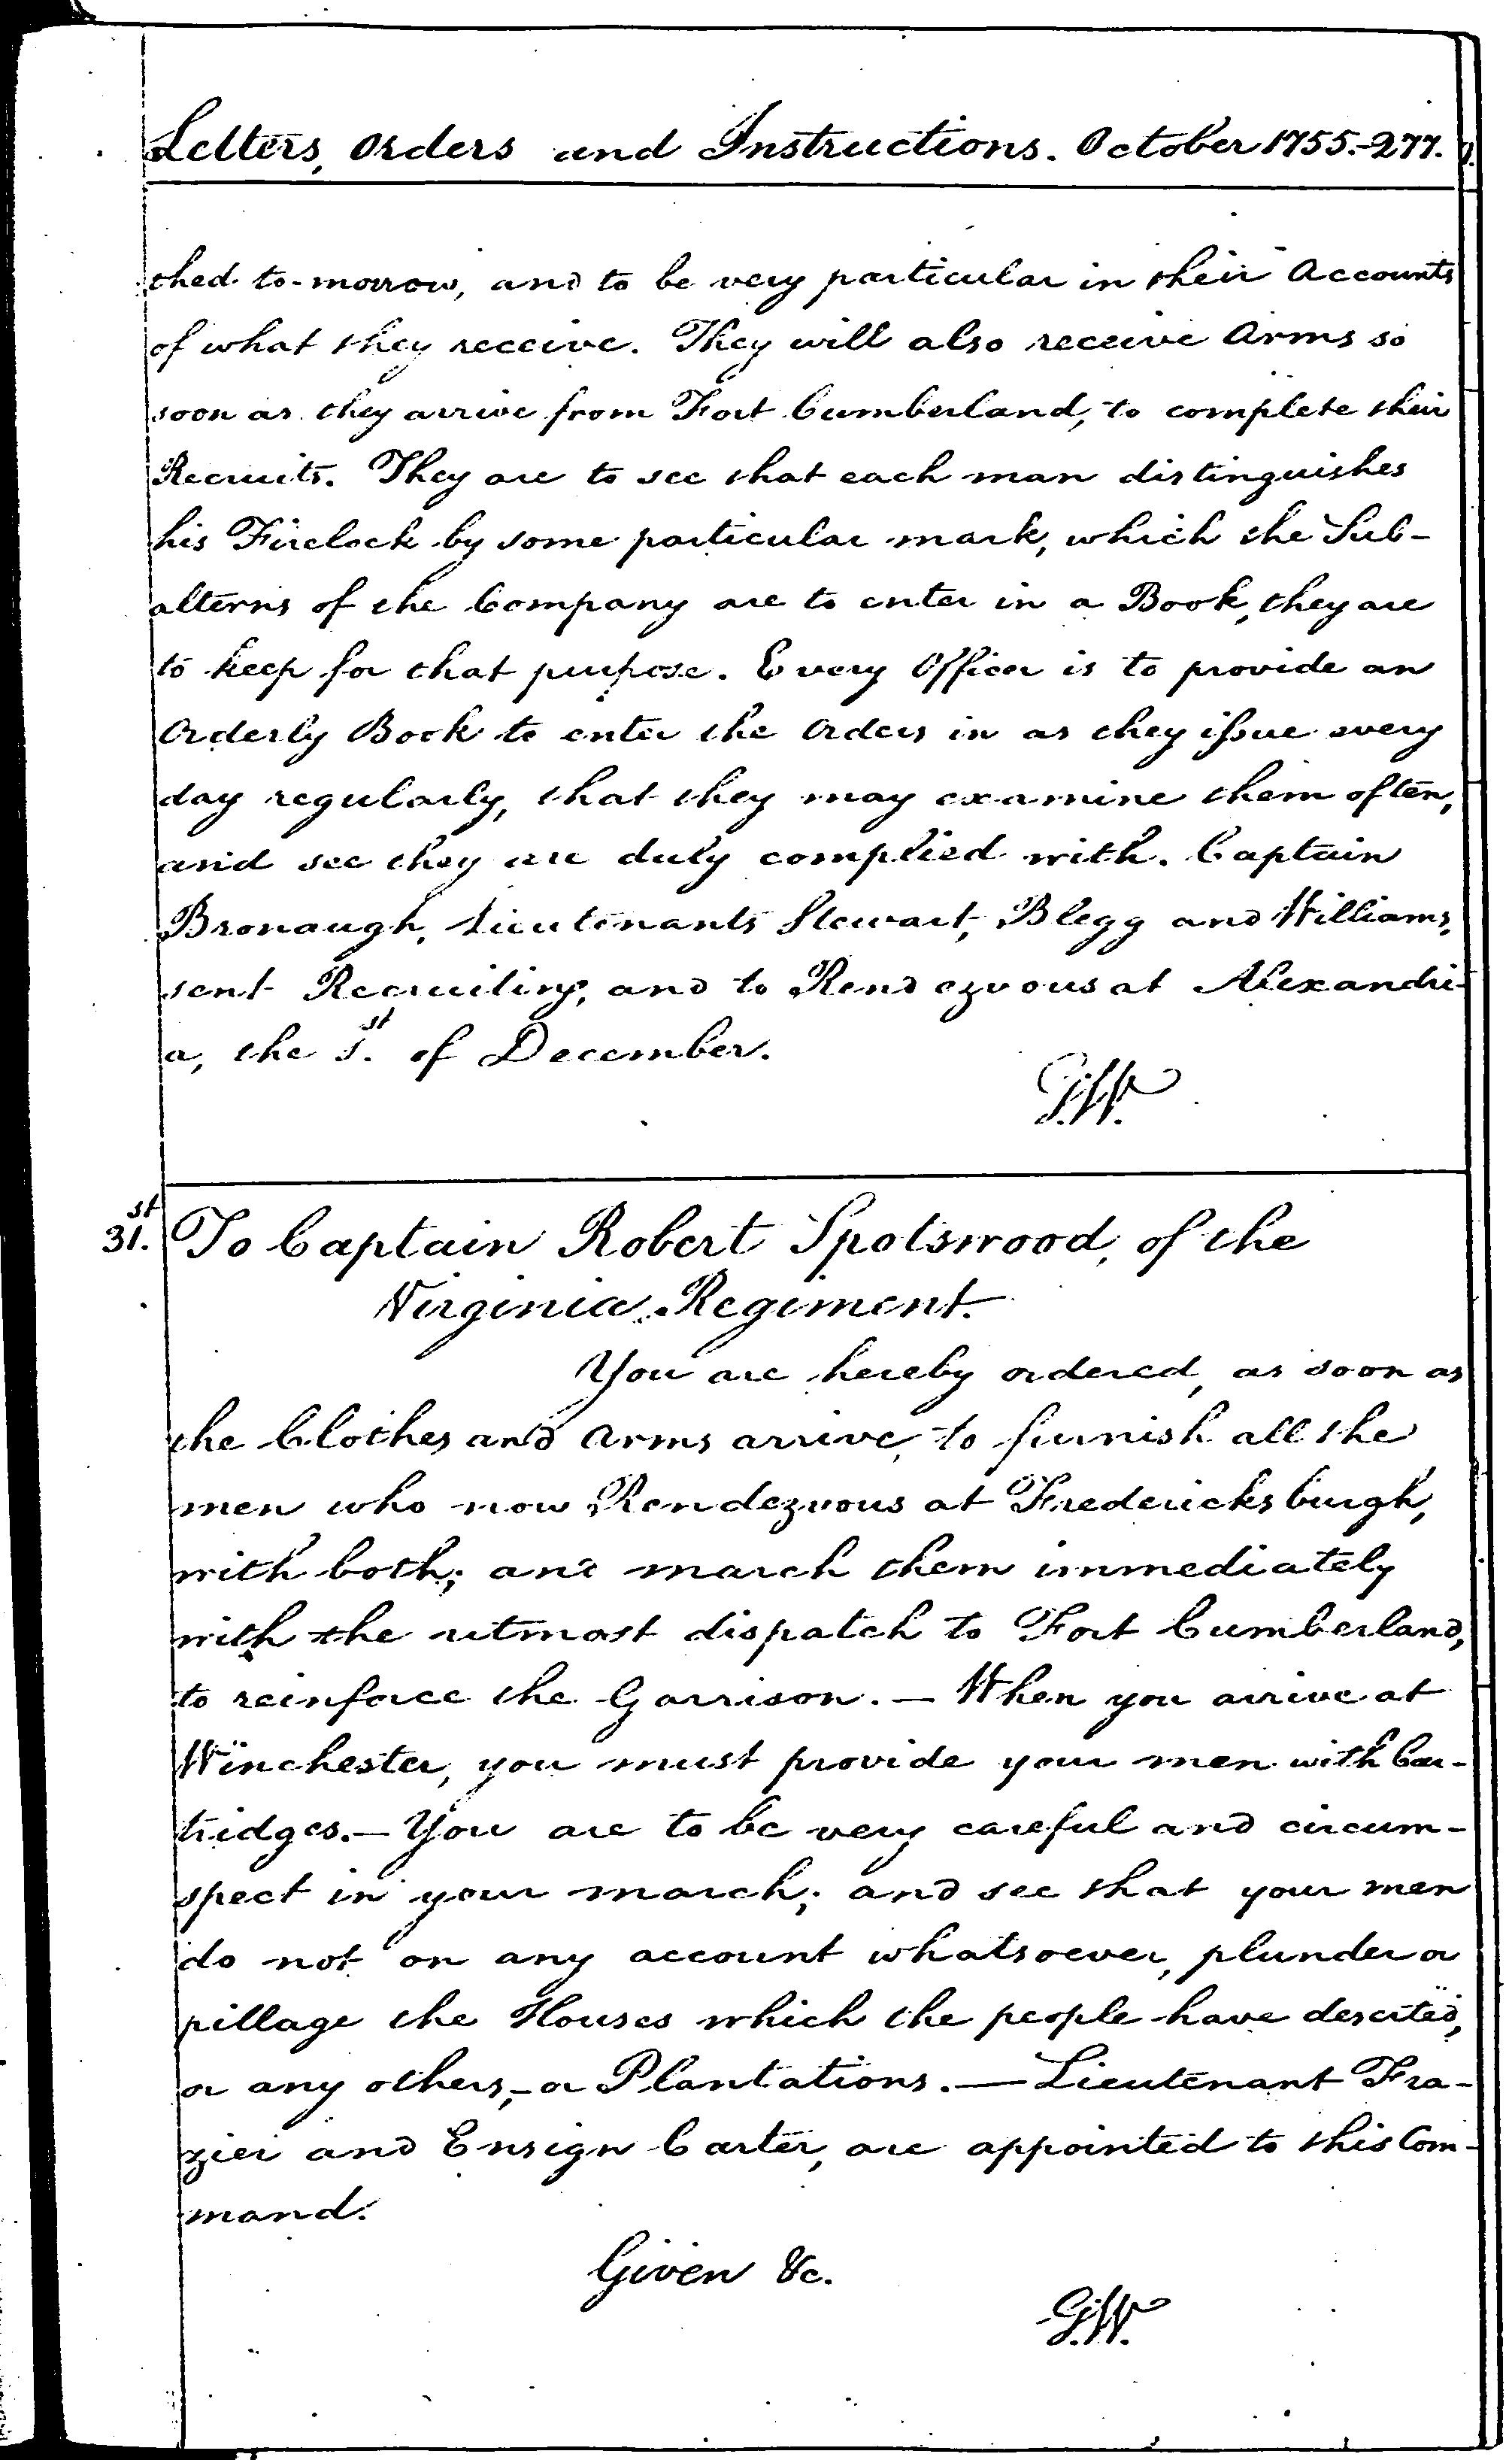 Letters, Orders and Instructions. October 1755.-277.
ched to-morrow, and to be very particular in their Accounts
of what they receive. They will also receive Arms so
soon as they arrive from Fort Cumberland, to complete their
Recruits. They are to see that each man distinguishes
his Firelock by some particular mark, which the Sub-
alterns of the Company are to enter in a Book, they are
to keep for that purpose. Every Officer is to provide an
Orderly Book to enter the Orders in as they issue every
day regularly, that they may examine them often,
and see they are duly complied with. Captain
Bronaugh, Lieutenants Stewart, Blegg and Williams,
sent Recruiting, and to Rendezvous at Alexandri-
a, the 1st. of December.
G.W.
31.st To Captain Robert Spotswood, of the
Virginia Regiment.
You are hereby ordered, as soon as
the Clothes and Arms arrive, to furnish all the
men who now Rendezvous at Fredericksburgh,
with both; and march them immediately
with the utmost dispatch to Fort Cumberland,
to reinforce the Garrison. — When you arrive at
Winchester, you must provide your men with Car-
tridges. — You are to be very careful and circum-
spect in your march; and see that your men
do not on any account whatsoever, plunder or
pillage the Houses which the people have deserted,
or any others, - or Plantations. — Lieutenant Fra-
zier and Ensign Carter, are appointed to this Com-
mand.
Given &c.
G.W.